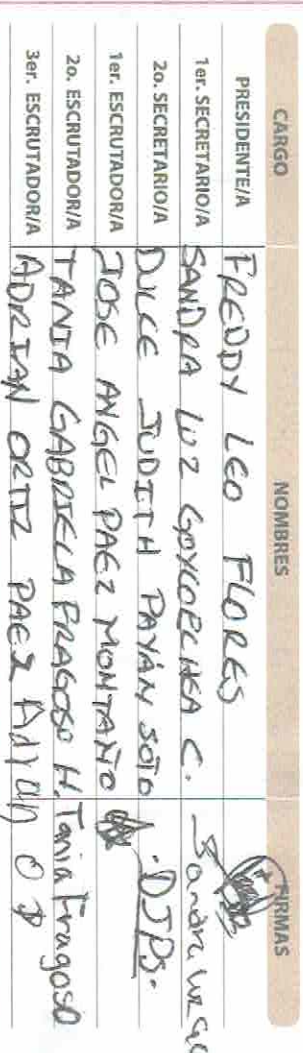 CARGO NOMBRES FIRMAS
PRESIDENTE/A FREDDY LEO FLORES
1er. SECRETARIO/A SANDRA LUZ GOYCOECHEA C. Sandra Luz
2o. SECRETARIO/A DULCE JUDITH PAYÁN SOTO .DJPS.
1er. ESCRUTADOR/A JOSE ANGEL PAEZ MONTAÑO
2o. ESCRUTADOR/A TANIA GABRIELA FRAGOSO H. Tania Fragoso
3er. ESCRUTADOR/A ADRIAN ORTIZ PAEZ Adrian O P